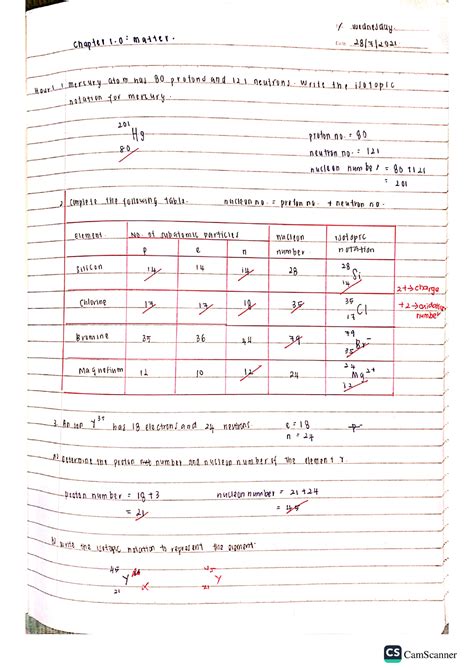 Wednesday
Chapter 1.0 : matter.
Date 28/7/2021
1 mercury atom has 80 protons and 121 neutrons. write the isotopic
notation for mercury.
201
Hg
80
proton no. = 80
neutron no. = 121
nucleon number = 80 + 121
= 201
2 Complete the following table. nucleon no. = proton no. + neutron no.
element No. of subatomic particles nucleon isotopic
p e n number notation
Silicon 14 14 14 28 28 Si 14
2+ → charge
Chlorine 17 17 18 35 35 Cl 17
+2 → oxidation
number
Bromine 35 36 44 79 79 Br- 35
Magnesium 12 10 12 24 24 Mg2+ 12
3. An ion Y3+ has 18 electrons and 24 neutrons e = 18
n = 24
a) Determine the proton number and nucleon number of the element Y.
proton number = 18 + 3 nucleon number = 21 + 24
= 21 = 45
b) Write the isotopic notation to represent the element.
45 Y 21 x 45 Y 21
CS CamScanner